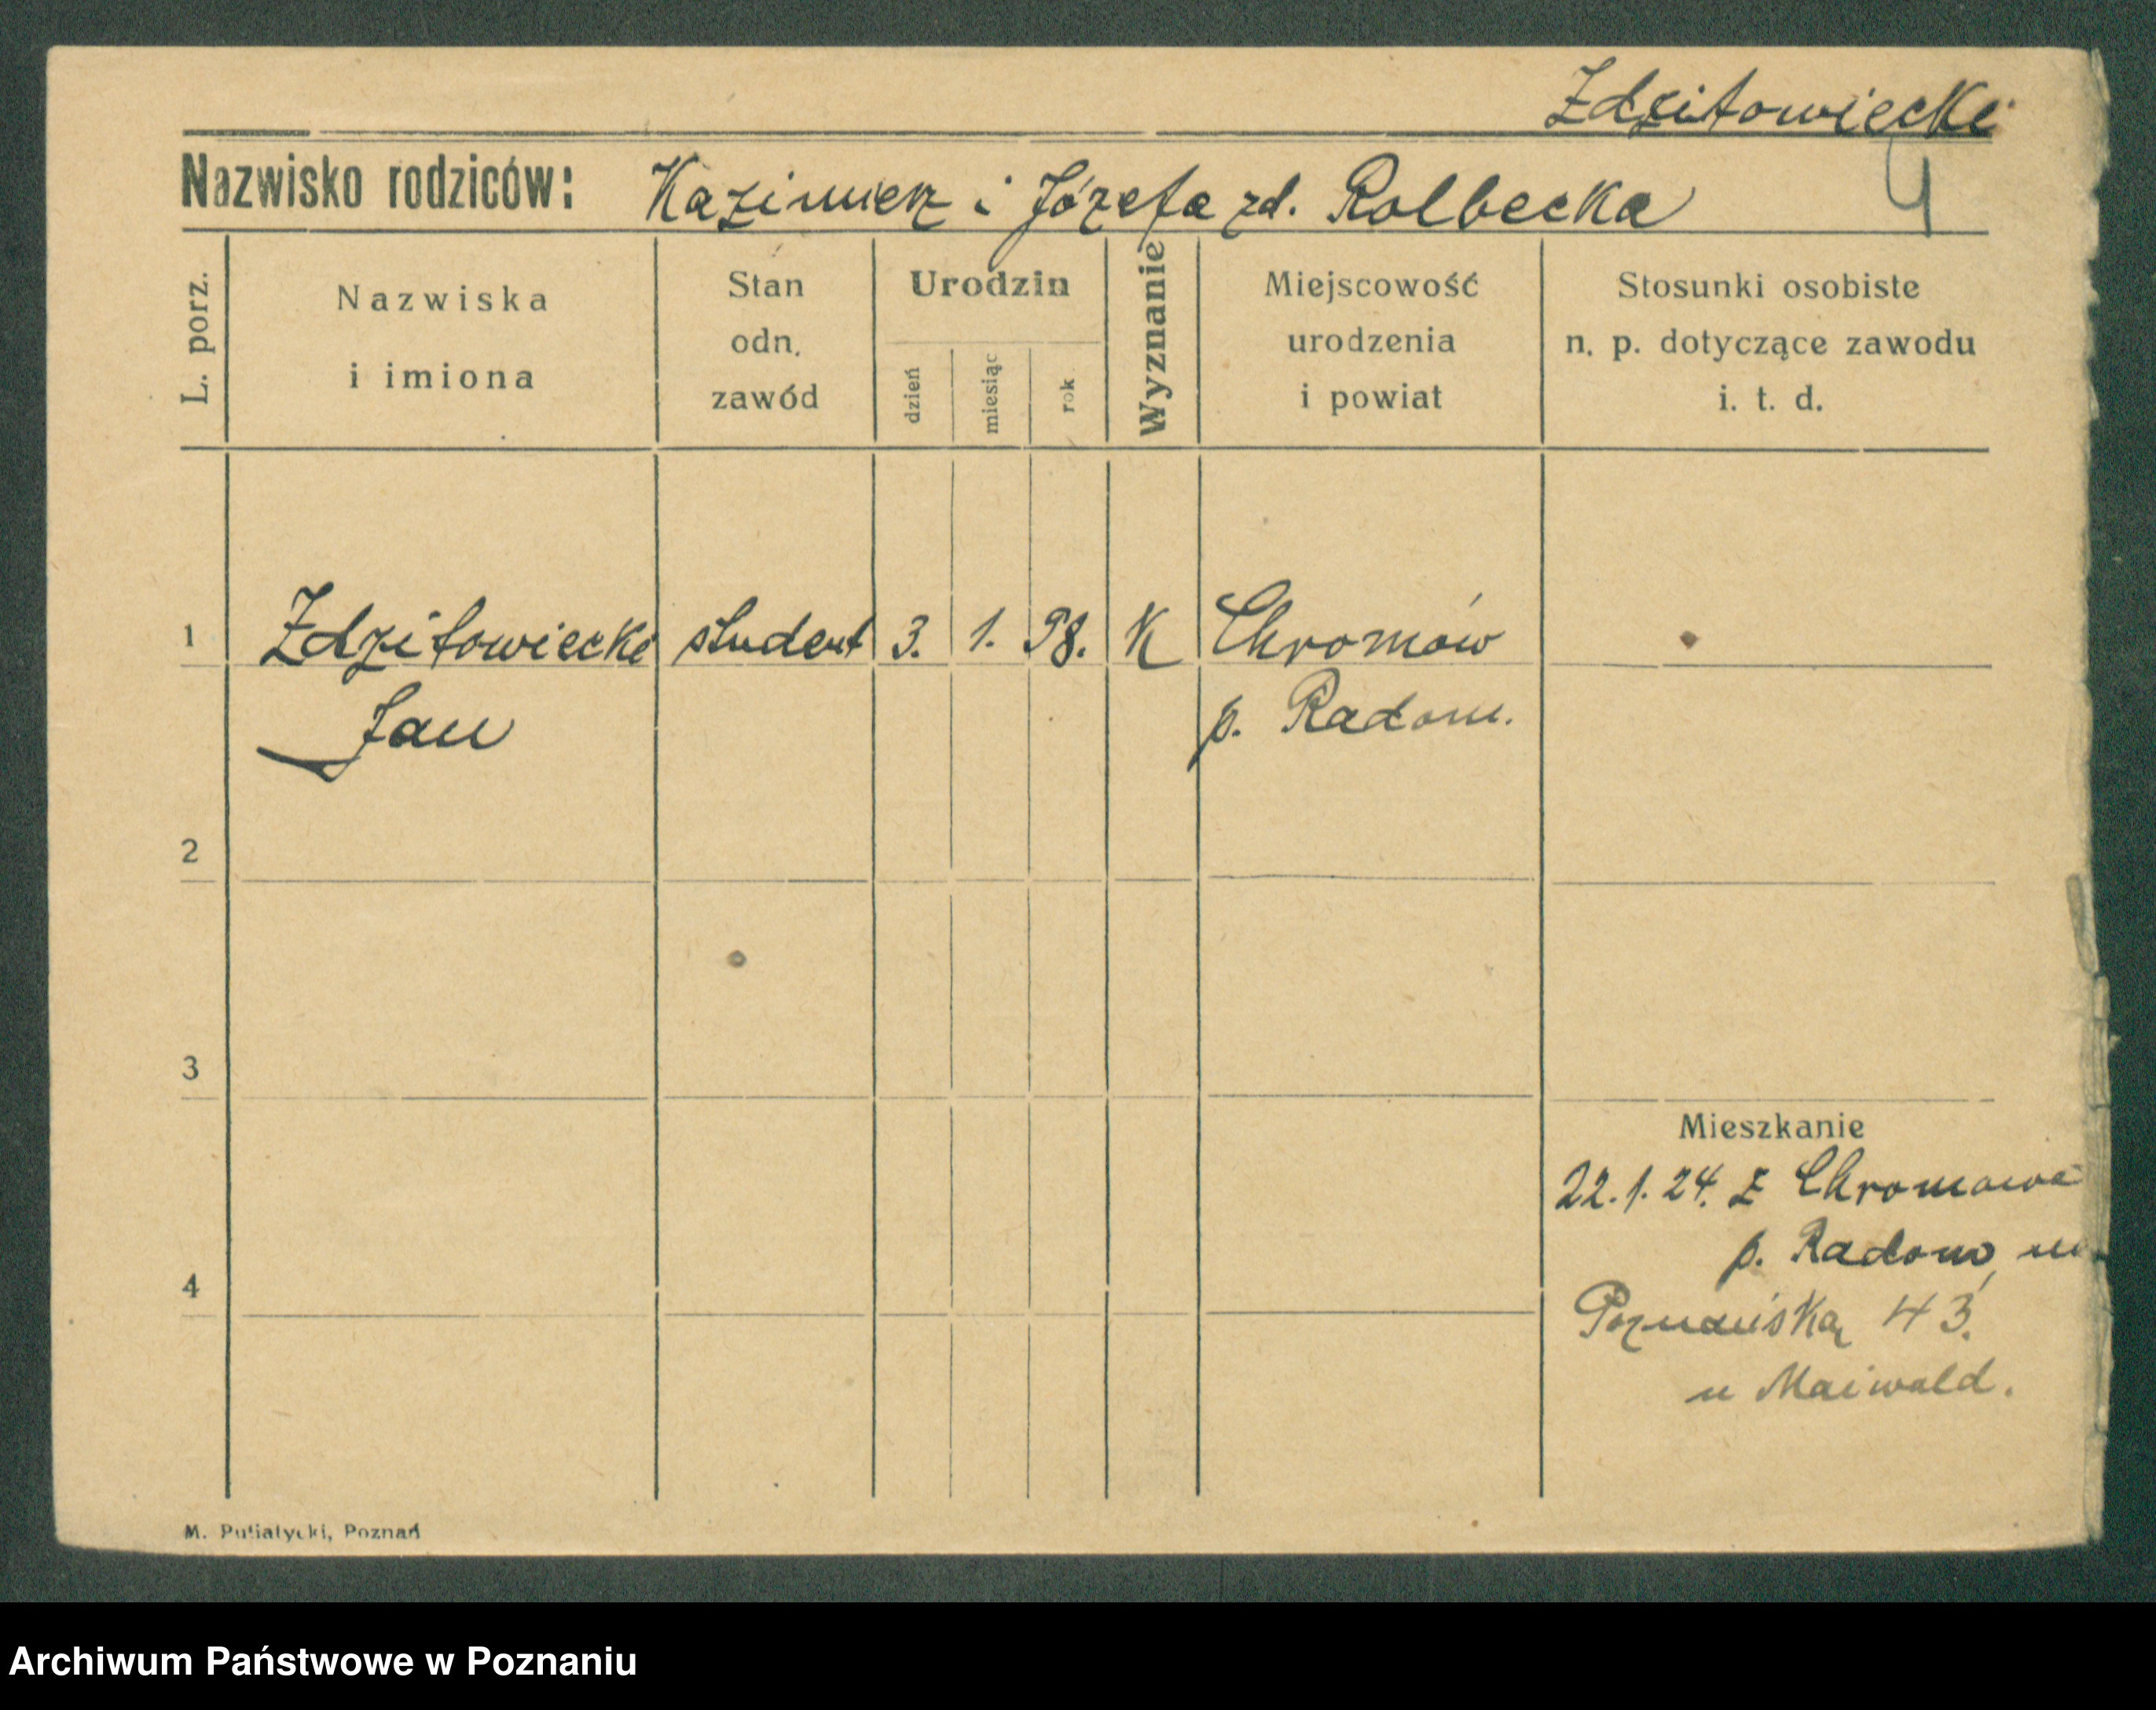 Zdzitowiecki
Nazwisko rodziców: Kazimierz i Józefa zd. Rolbecka
4
L. porz.
Nazwiska
i imiona
Stan
odn.
zawód
Urodzin
dzień
miesiąc
rok
Wyznanie
Miejscowość
urodzenia
i powiat
Stosunki osobiste
n. p. dotyczące zawodu
i. t. d.
1 Zdzitowiecki student 3. 1. 98. K Chromów
Jan p. Radom.
2
3
Mieszkanie
22.1.24. z Chromowa
p. Radom,
4
Poznańska 43.
u Maiwald.
M. Putiatycki, Poznań
Archiwum Państwowe w Poznaniu